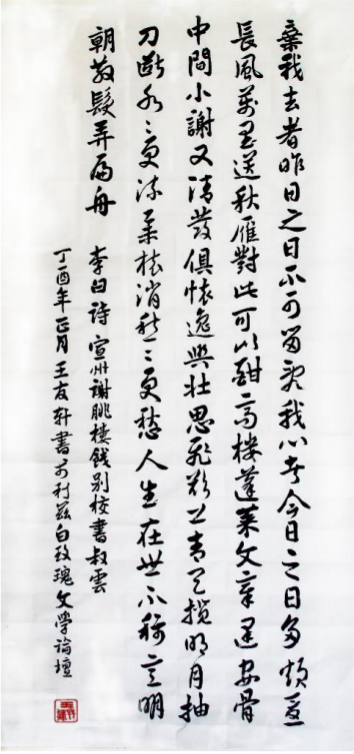 棄我去者昨日之日不可留亂我心者今日之日多煩憂
長風萬里送秋雁對此可以酣高樓蓬萊文章建安骨
中間小謝又清發俱懷逸興壯思飛欲上青天攬明月抽
刀斷水〻更流舉杯消愁〻更愁人生在世不稱意明
朝散髮弄扁舟 李白詩 宣州謝朓樓餞別校書叔雲
丁酉年正月王友軒書於利茲白玫瑰文學論壇